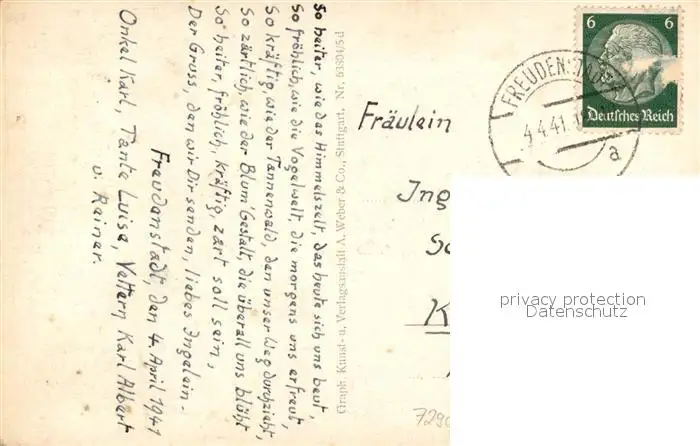 So heiter, wie das Himmelszelt, das heute sich uns beut,
So fröhlich, wie die Vogelwelt, die morgens uns erfreut,
So kräftig, wie der Tannenwald, den unser Weg durchzieht,
So zärtlich, wie der Blum' Gestalt, die überall uns blüht
So heiter, fröhlich, kräftig, zart soll sein,
Der Gruss, den wir Dir senden, liebes Ingelein.
Freudenstadt, den 4. April 1941
Onkel Karl, Tante Luise, Vettern Karl Albert
u. Rainer.
Graph. Kunst- u. Verlagsanstalt A. Weber & Co., Stuttgart. Nr.
Fräulein
Ing
K
6 6
Deutsches Reich
FREUDENSTADT
4.4.41
a
privacy protection
Datenschutz